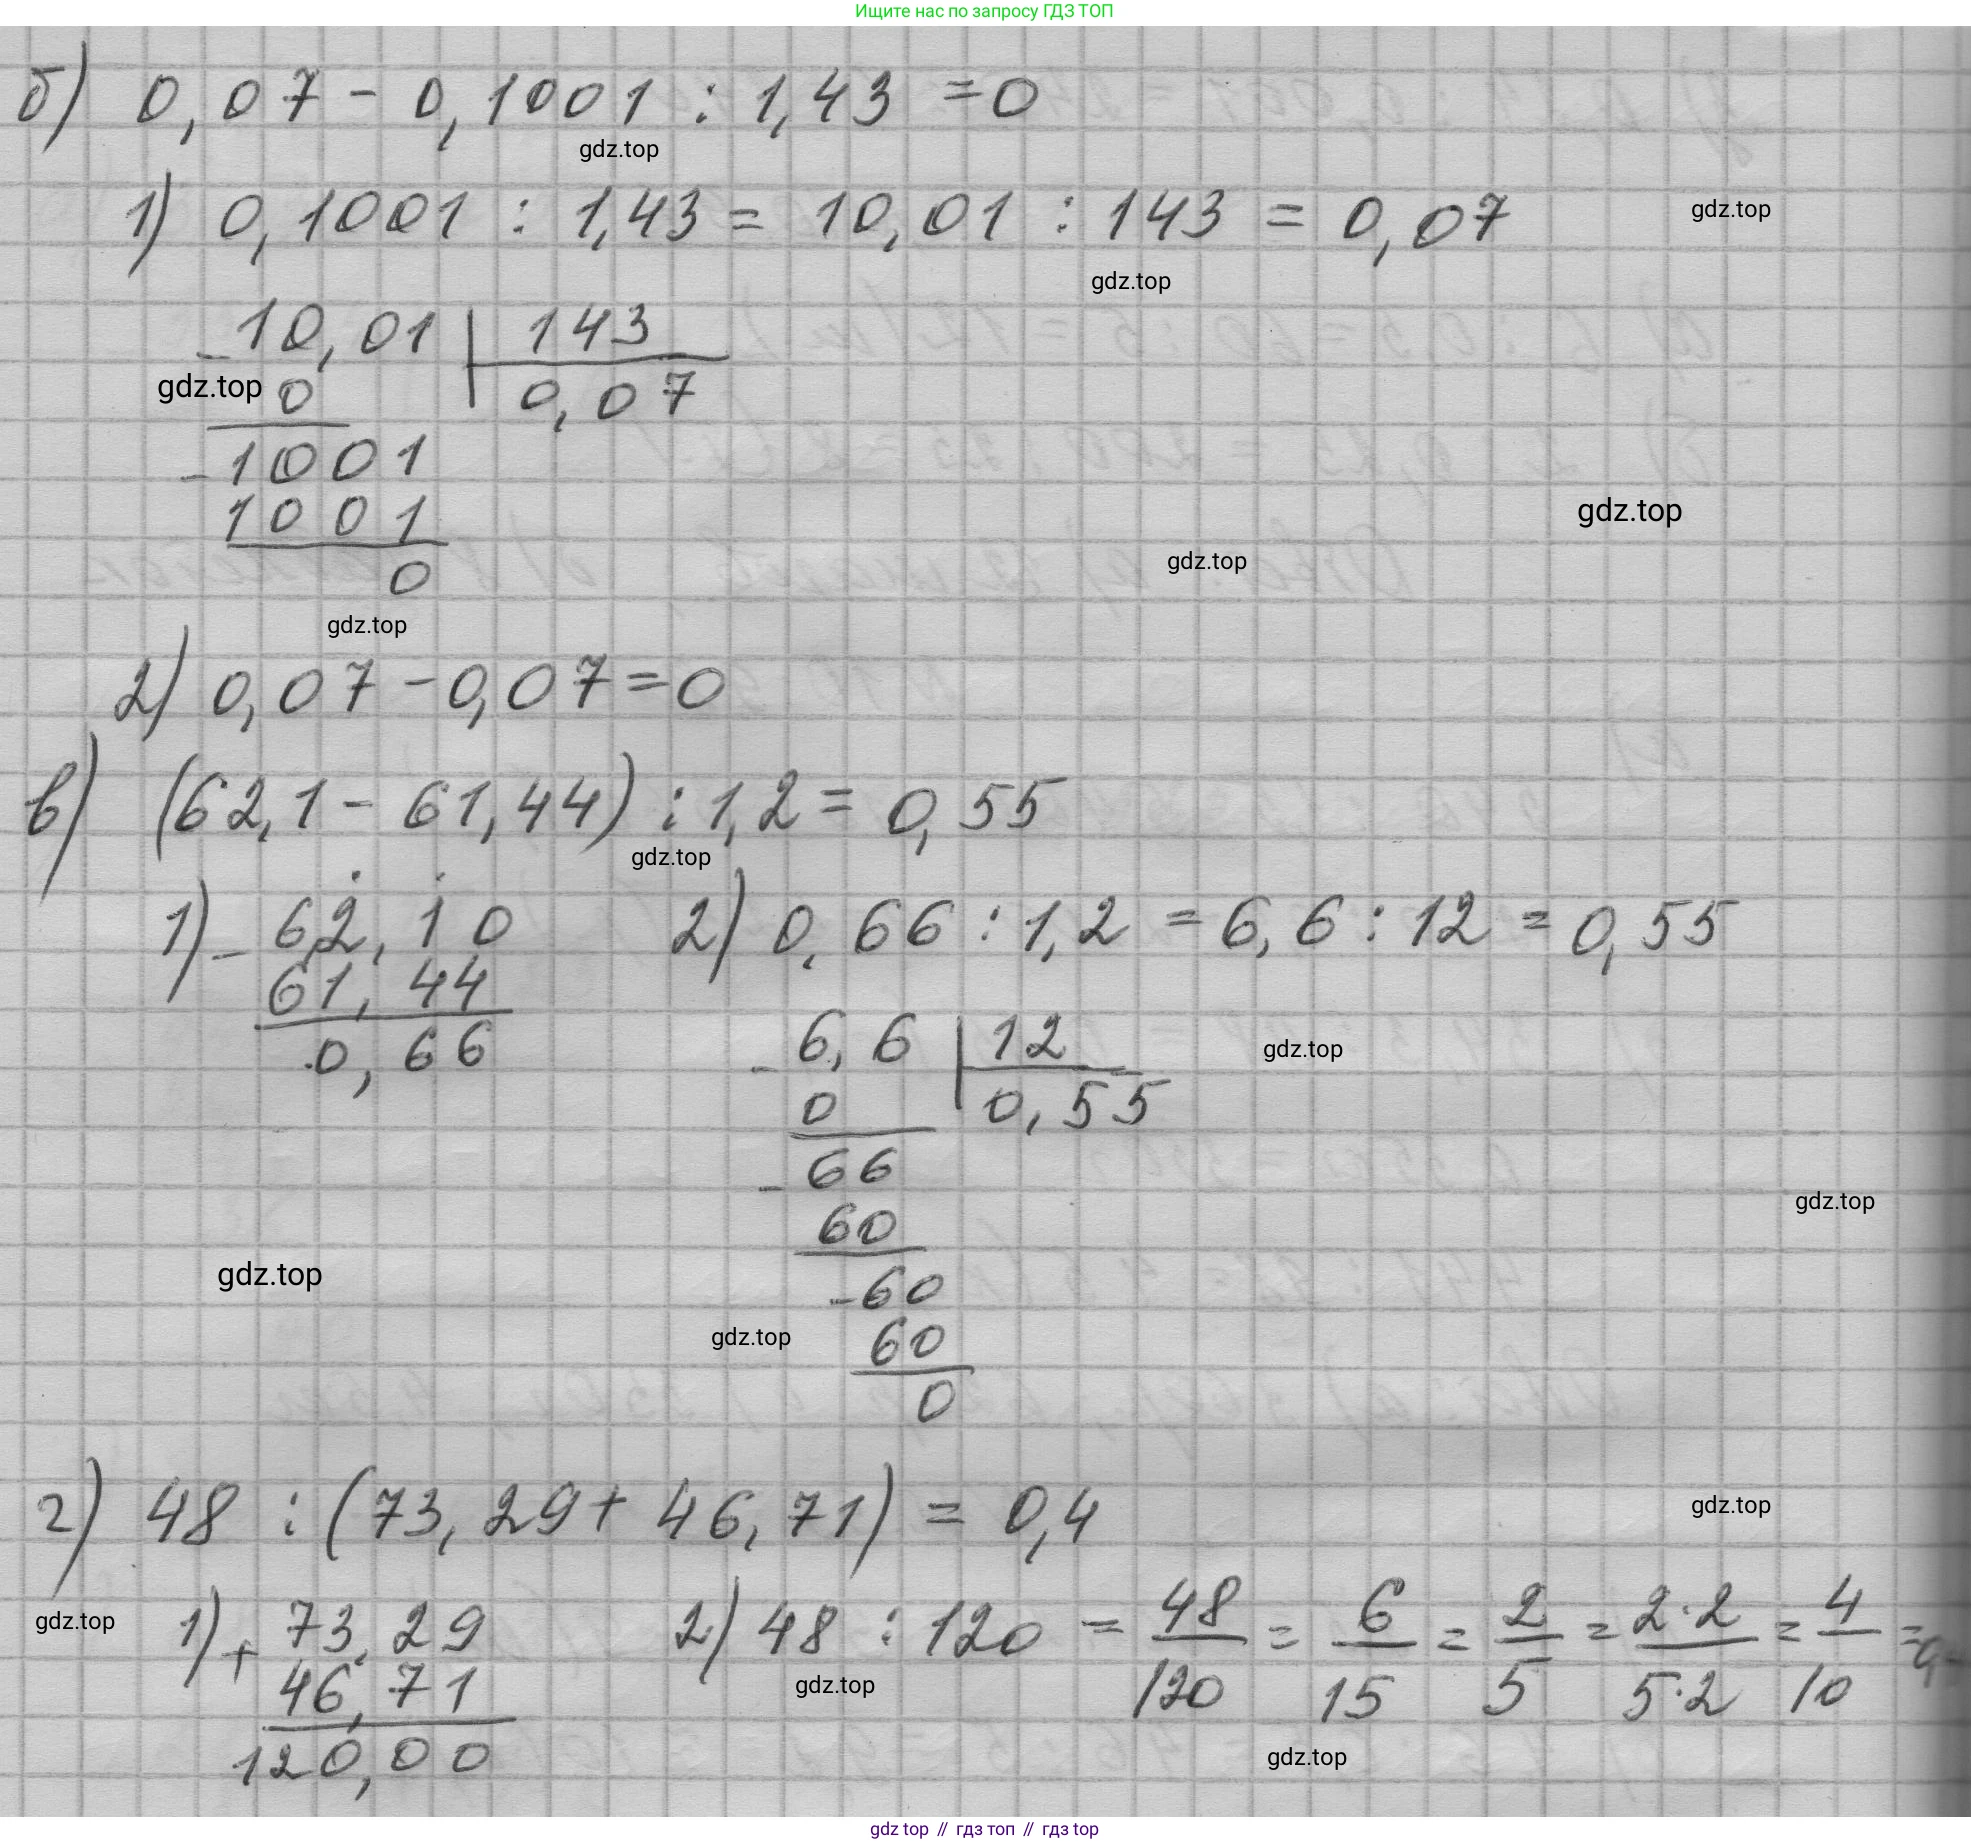 Ищите нас по запросу ГДЗ ТОП
б) 0,07 - 0,1001 : 1,43 = 0
gdz.top
1) 0,1001 : 1,43 = 10,01 : 143 = 0,07
gdz.top
gdz.top
- 10,01 | 143
gdz.top 0 0,07
- 1001
1001
gdz.top
0
gdz.top
gdz.top
2) 0,07 - 0,07 = 0
в) (62,1 - 61,44) : 1,2 = 0,55
gdz.top
1) - 62,10
61,44
0,66
2) 0,66 : 1,2 = 6,6 : 12 = 0,55
- 6,6 | 12
gdz.top
0 0,55
- 66
60
gdz.top
gdz.top
- 60
60
gdz.top
0
г) 48 : (73,29 + 46,71) = 0,4
gdz.top
1) + 73,29
gdz.top
46,71
120,00
2) 48 : 120 = 48/120 = 6/15 = 2/5 = 2·2/5·2 = 4/10 =
gdz.top
gdz.top
gdz top // гдз топ // гдз top